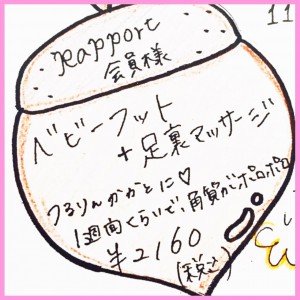 11
Rapport
会員様
ベビーフット
+足裏マッサージ
つるりんかかとに♡
1週間くらいで、角質がポロポロ
¥2160
(税込)